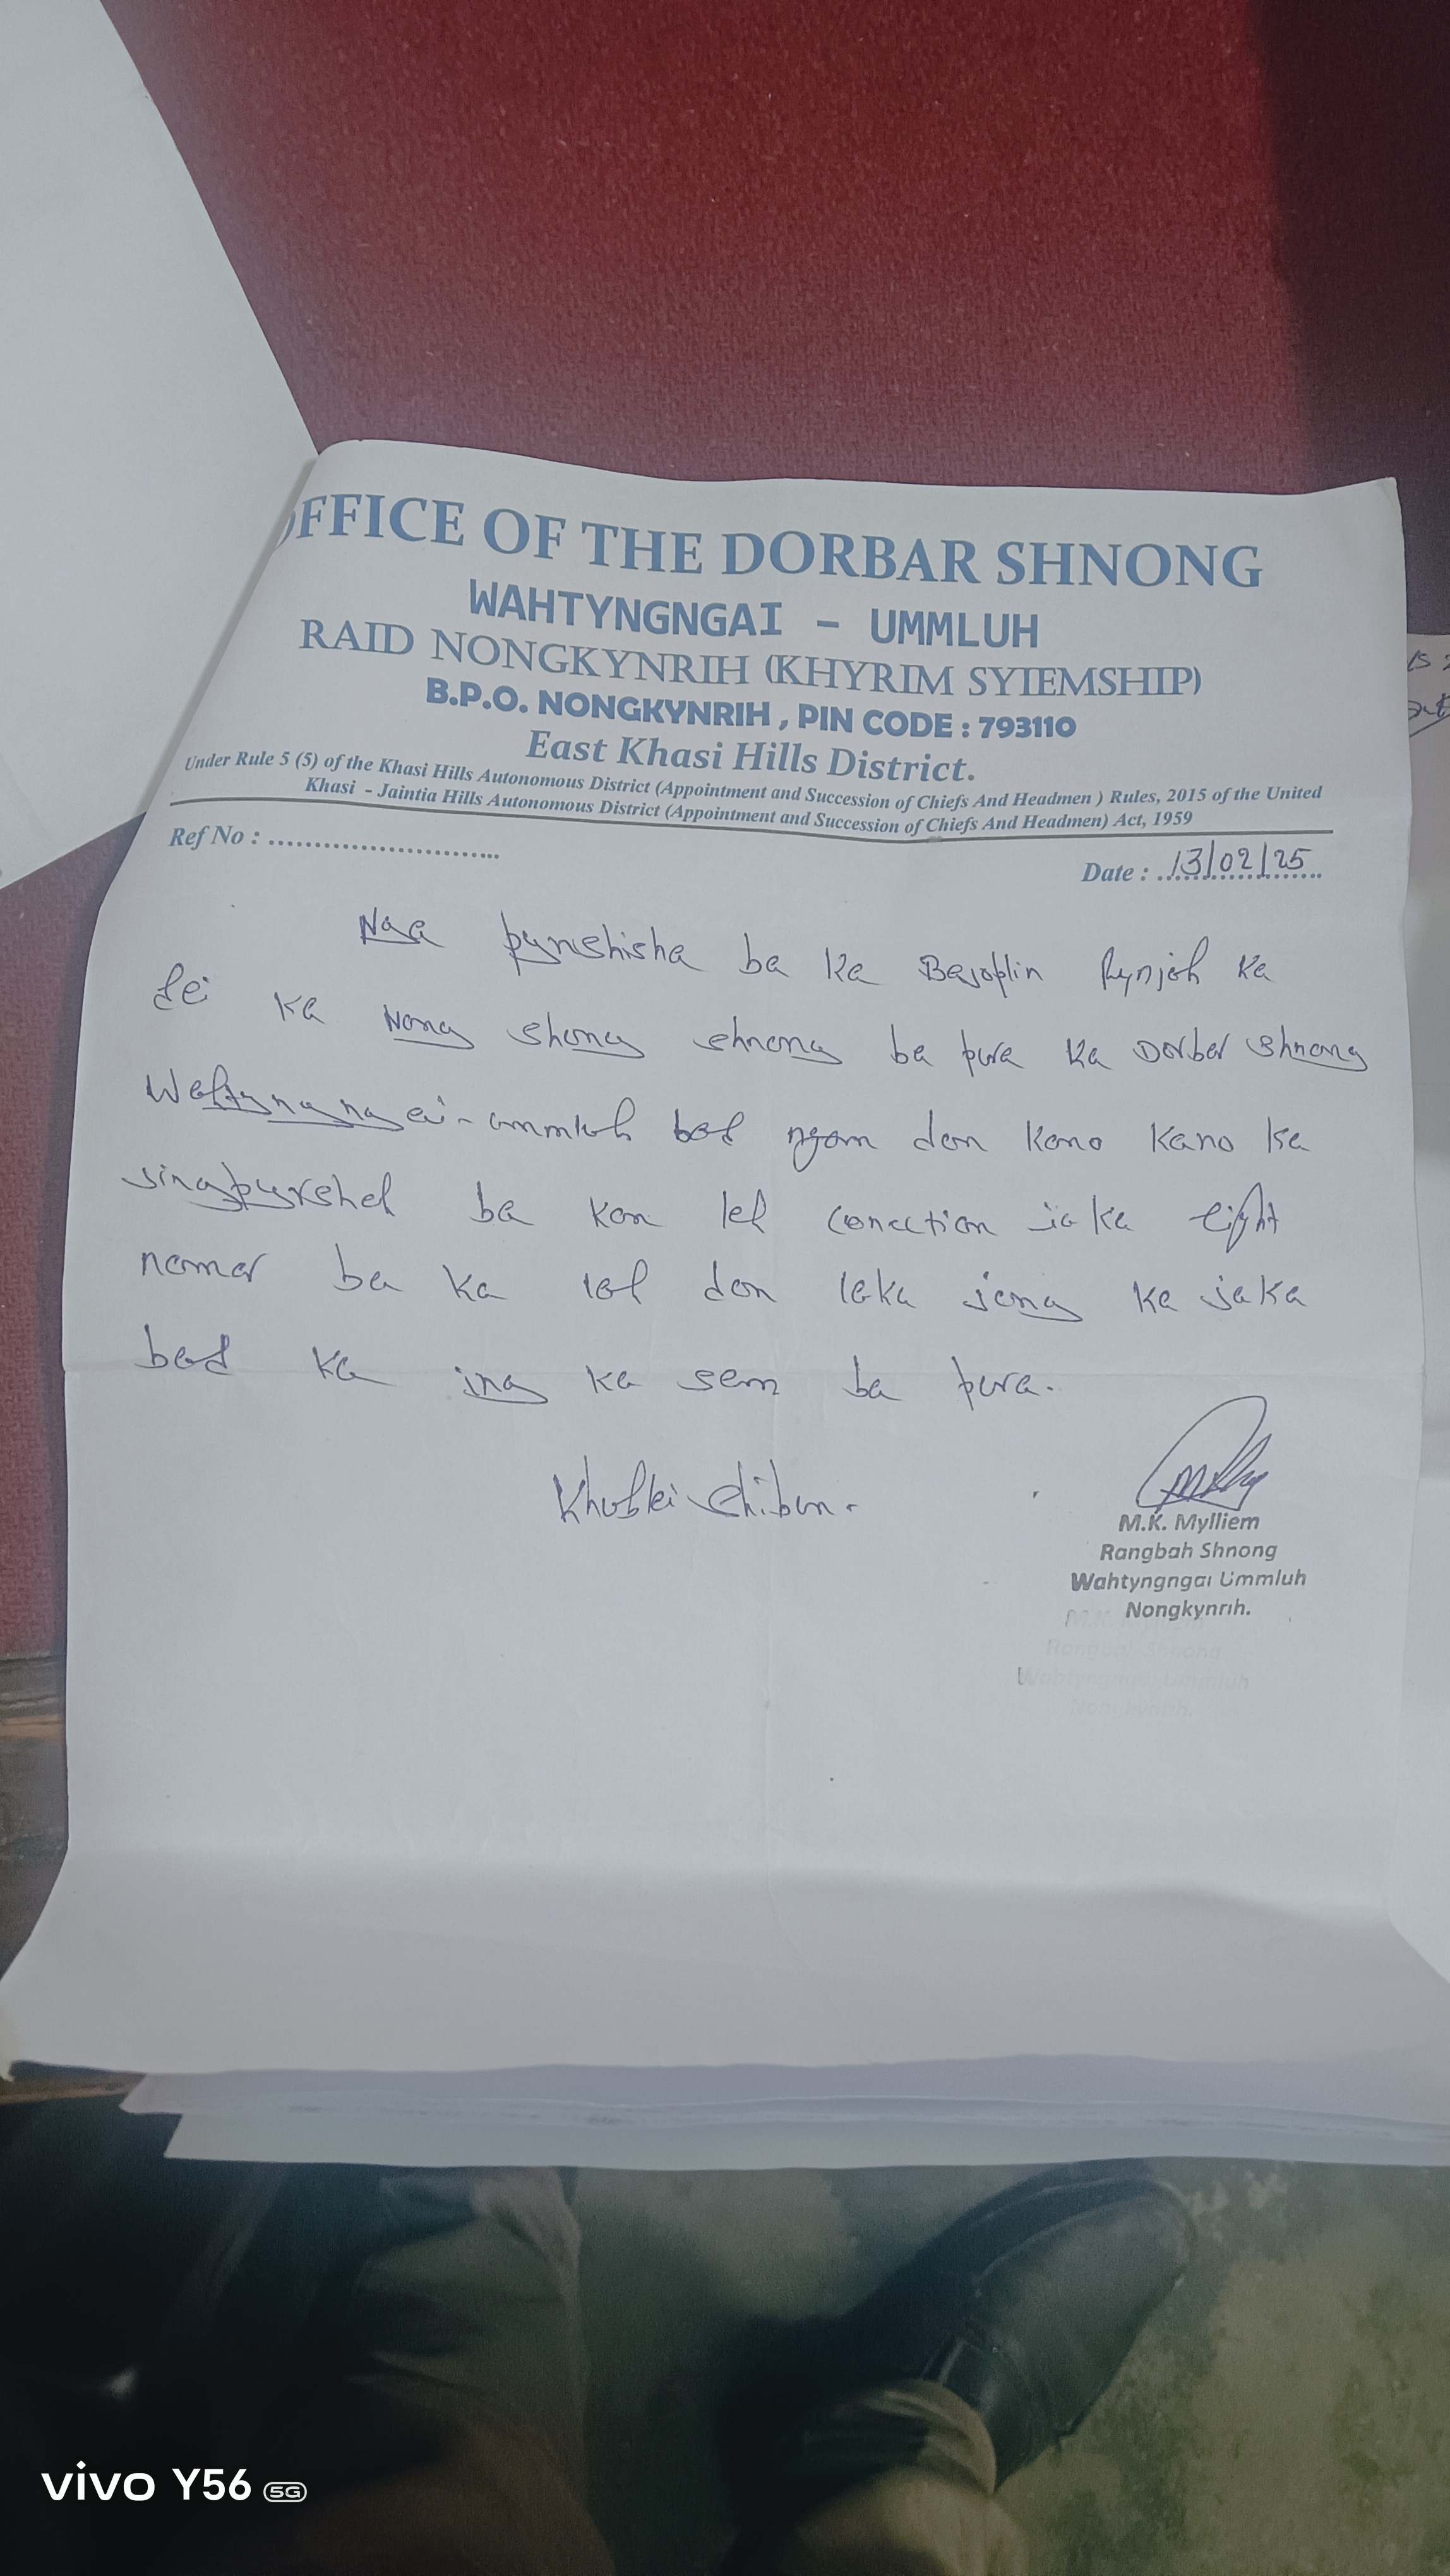 OFFICE OF THE DORBAR SHNONG
WAHTYNGNGAI - UMMLUH
RAID NONGKYNRIH (KHYRIM SYIEMSHIP)
B.P.O. NONGKYNRIH , PIN CODE : 793110
East Khasi Hills District.
Under Rule 5 (5) of the Khasi Hills Autonomous District (Appointment and Succession of Chiefs And Headmen ) Rules, 2015 of the United
Khasi - Jaintia Hills Autonomous District (Appointment and Succession of Chiefs And Headmen) Act, 1959
Ref No : ............................
Date : 13/02/25
Nga pynshisha ba ka Rynjah ka
dei ka Nong shong shnong ba pura ka Dorbar shnong
Wahtyngngai-ummluh bad ngam don kano kano ka
jingpyrshah ba kan leh conection ia ka light
namar ba ka lah don laka jong ka jaka
bad ka ing ka sem ba pura.
Khublei shibun.
M.K. Mylliem
Rangbah Shnong
Wahtyngngai Ummluh
Nongkynrih.
M.K. Mylliem
Rangbah Shnong
Wahtyngngai Ummluh
Nongkynrih.
vivo Y56 5G